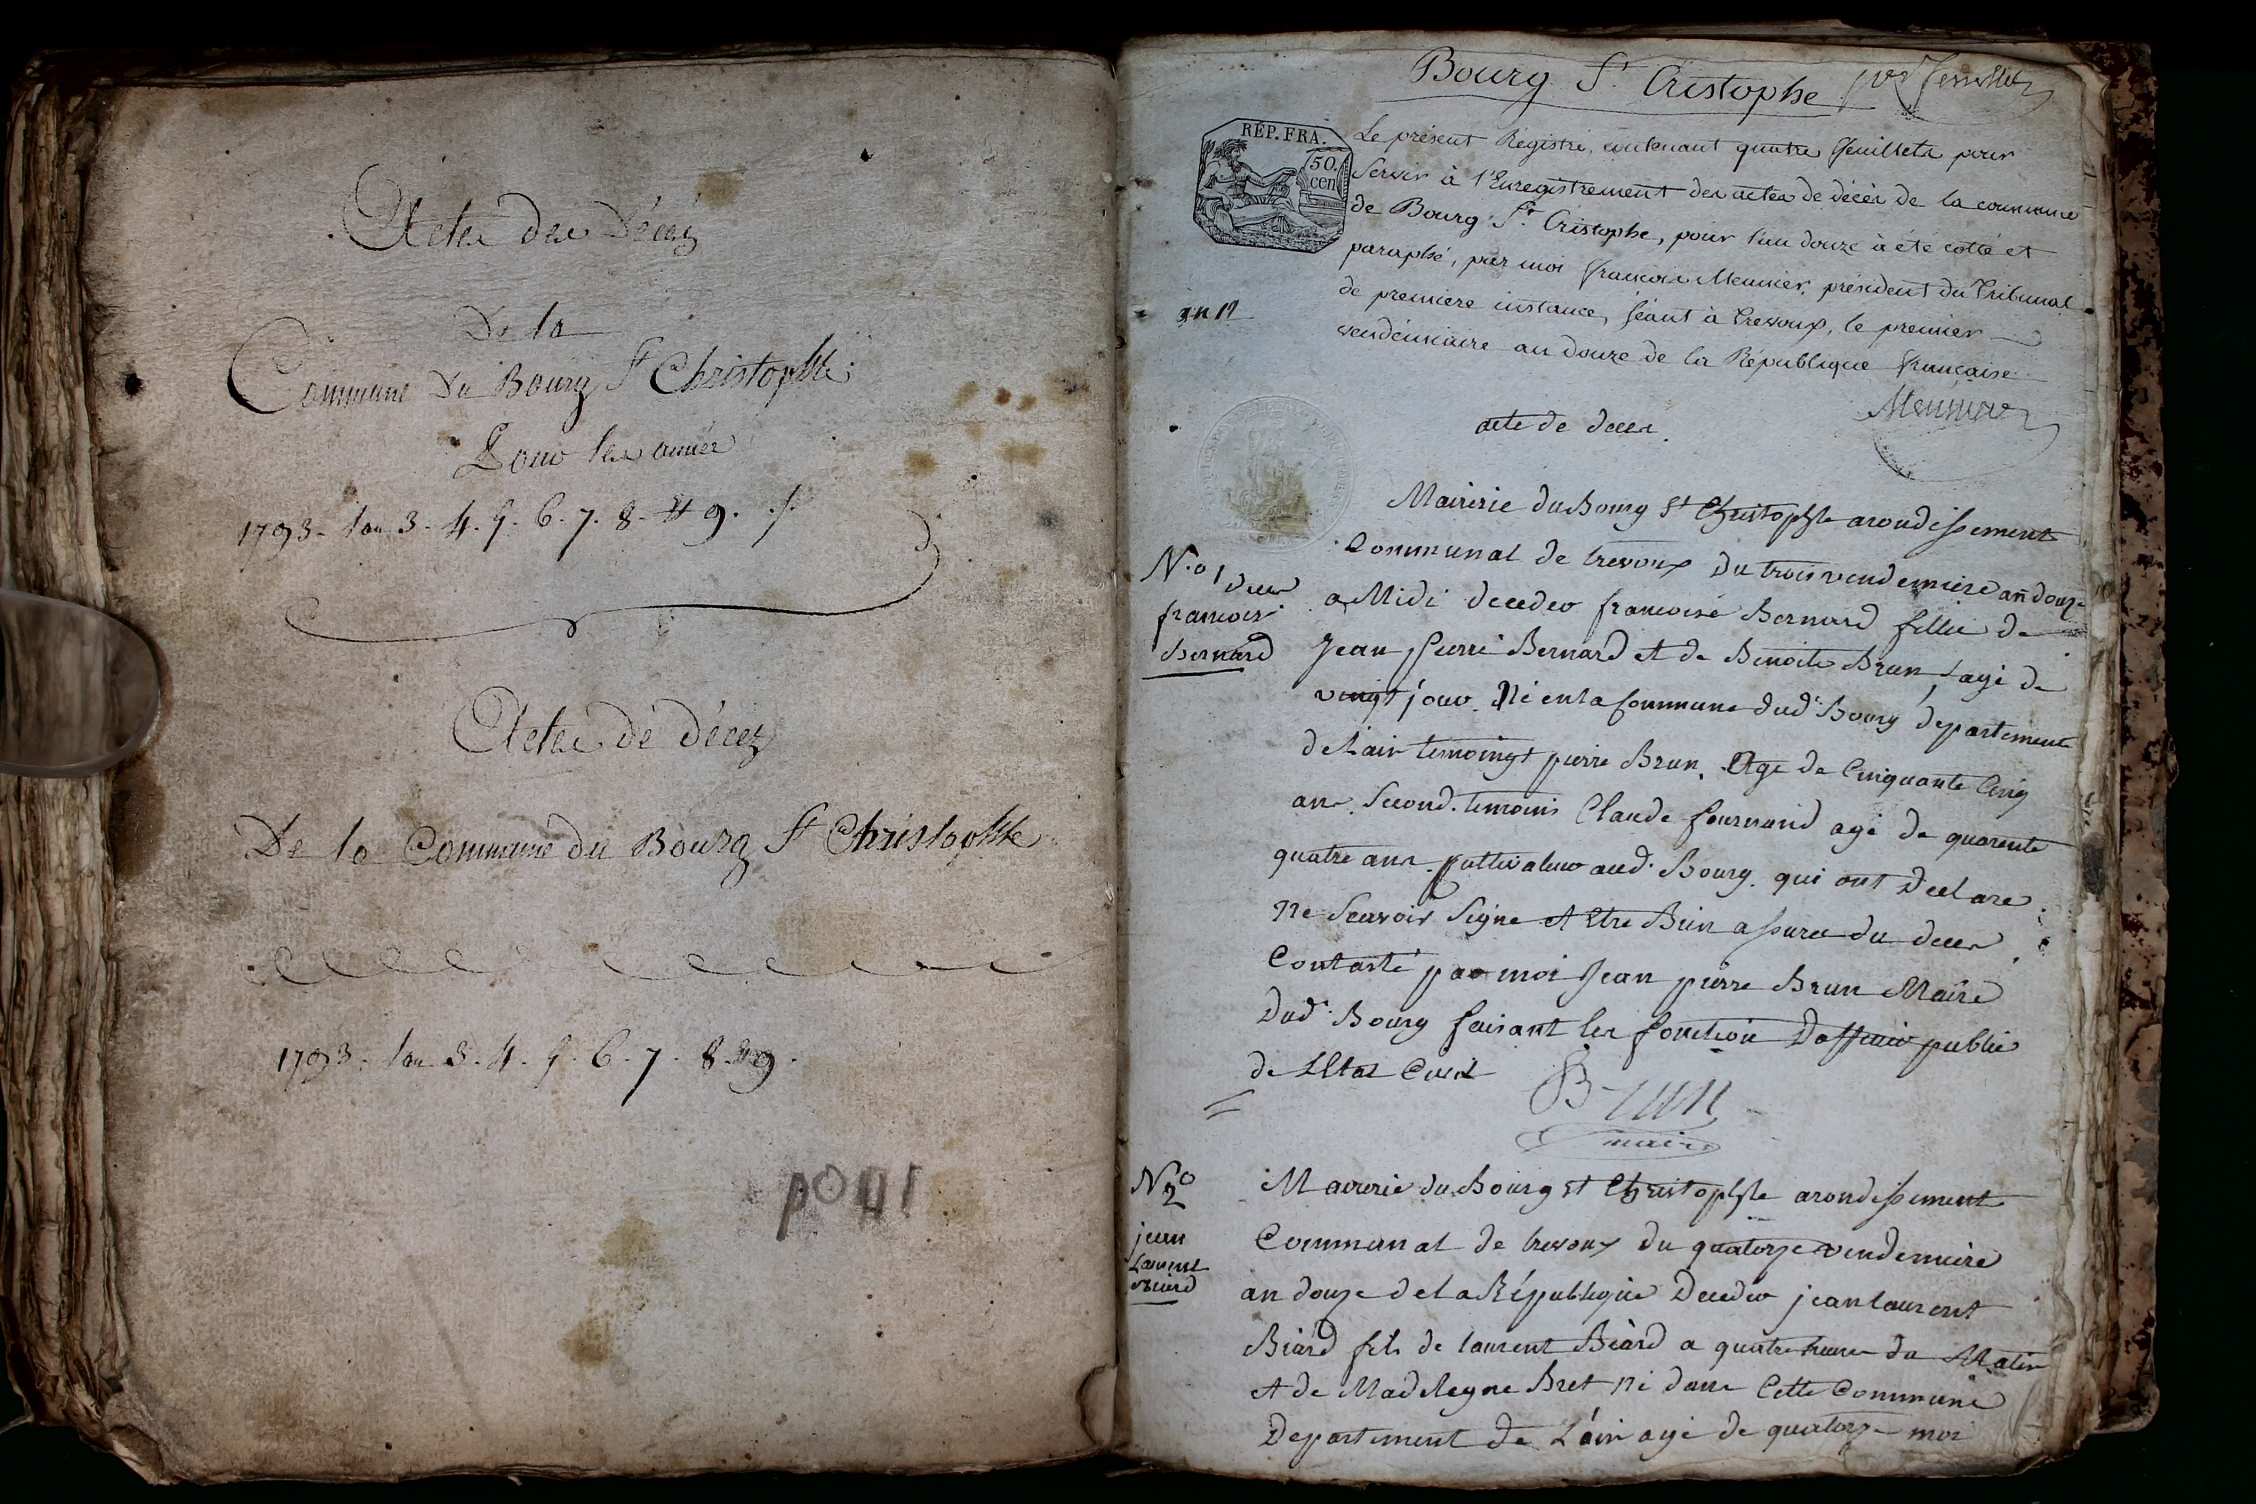 Actes des Décéz
De la
Commune Du Bourg St Christophle
Pour les années
1793. l'an 3. 4. 5. 6. 7. 8. et 9. ./.
Actes dé décez
De la Commune du Bourg St Christophle
1793. l'an 3. 4. 5. 6. 7. 8. et 9.
Bourg St Cristophe 1er feuillet
RÉP. FRA.
50.
cen
Le présent Régistre, contenant quatre feuillets pour
Servir à l'Enregistrement des actes de décès de la commune
de Bourg St Cristophe, pour l'an douze à été cotté et
paraphé, par moi françois Meunier, président du Tribunal
de premiere instance, séant à Trevoux, le premier
vendémiaire an douze de la République française
an 12
Meunier
acte de deces.
Mairerie du Bourg St Christophle arondissement
Communal de trevoux Du trois vendemiere an douze
N.o 1 deces
francoise
Bernard
a Midi decedee francoise Bernard fillie de
Jean pierre Bernard et de Benoite Brun, agé de
vingt jour Né en la Commune dud. Bourg departement
de l'ain temoingt pierre Brun. Age de Cinquante Cinq
ans Second temoins Claude fournand agé de quarente
quatre ans cultivateur aud. Bourg. qui ont Declare
ne Scavoir Signe et Etre Bien assuré du deces
Contasté par moi Jean pierre Brun Maire
Dud. Bourg faisant les fonction Dofficier public
de L'Etat Civil
Brun
maire
No 2
jean
Laurent
Biard
Mairerie du Bourg St Christophle arondissement
Communal de trevoux du quatorze vendemiere
an douze de la République Decedee jean laurent
Biard fils de laurent Biard a quatre heures du Matin
et de Madelegne Bret né dans Cette Commune
Departement de L'ain agé de quatorze moi